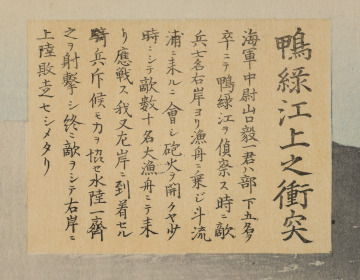 鴨綠江上之衝突
海軍中尉山口毅一君ハ部下五名ヲ
卒ニテ鴨綠江ヲ偵察ス時ニ敵
兵士名右岸ヨリ漁舟ニ乗ジ斗流
浦ニ来ルニ會シ砲火ヲ開クヤ少
時ニシテ敵數十名大漁舟ニテ来
リ應戦ス我又左岸ニ到着セル
騎兵斥候モ力ヲ協セ水陸一齊
之ヲ射擊シ終ニ敵ヲシテ右岸ニ
上陸敗走セシメタリ